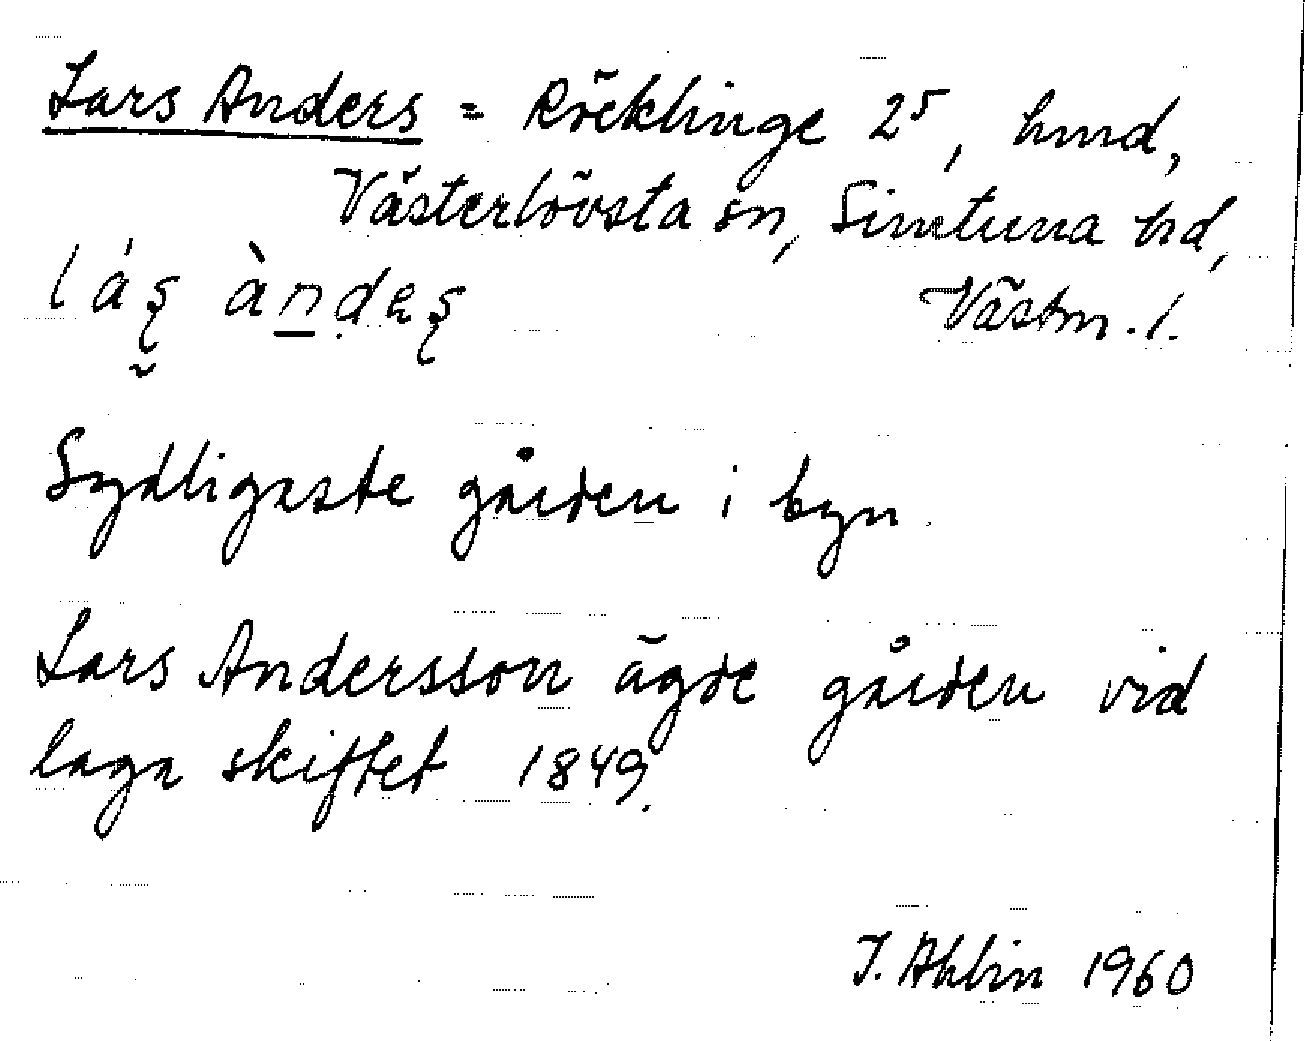 Lars Anders = Röcklinge 2⁵, hmd,
Västerlövsta sn, Simtuna hd,
Västm. l.
Sydligaste gården i byn
Lars Andersson ägde gården vid
laga skiftet 1849.
J. Ahlin 1960